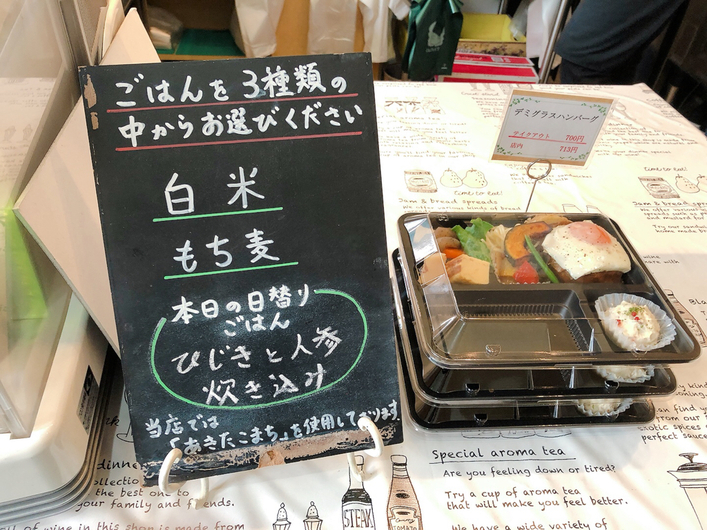 ごはんを3種類の
中からお選びください
白米
もち麦
本日の日替り
ごはん
ひじきと人参
炊き込み
当店では
「あきたこまち」を使用しております
デミグラスハンバーグ
テイクアウト 700円
店内 713円
time to eat!
Jam & bread spreads
Special aroma tea
Are you feeling down or tired?
Try a cup of aroma tea
that will make you feel better.
We have a wide
dinner
the best one to
your family and friends.
of wine in this shop is made from
STEAK
TOMATO